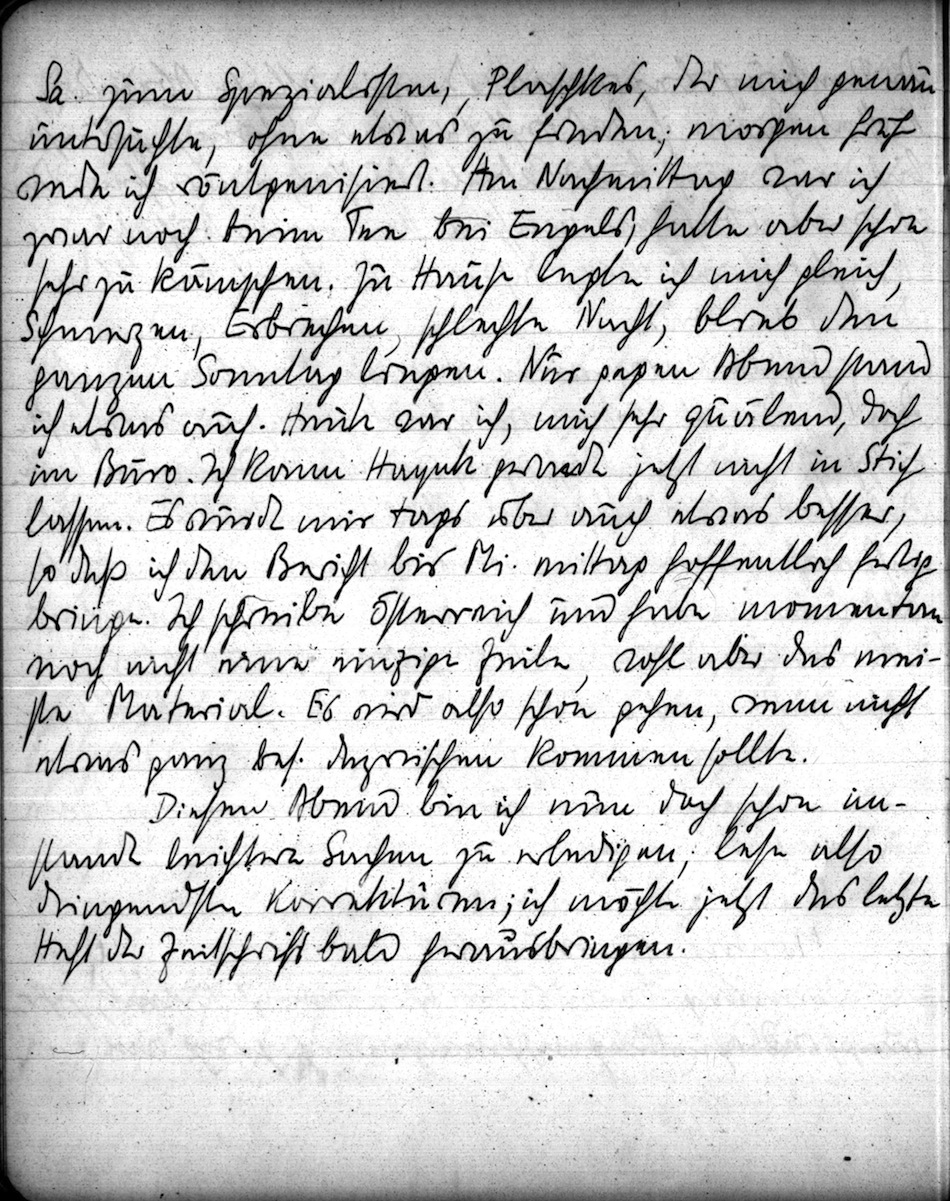 Sa. zum Spezialisten, Plaschkes, der mich genau
untersuchte, ohne etwas zu finden; morgen früh
werde ich röntgenisiert. Am Nachmittag war ich
zwar noch beim Tee bei Engels, hatte aber schon
sehr zu kämpfen. Zu Hause legte ich mich gleich,
Schmerzen, Erbrechen, schlechte Nacht, blieb den
ganzen Sonntag liegen. Nur gegen Abend stand
ich etwas auf. Heute war ich, mich sehr quälend, doch
im Büro. Ich kann Hayek gerade jetzt nicht in Stich
lassen. Es wurde mir tags über auch etwas besser,
so daß ich den Bericht bis Mi. mittag hoffentlich fertig
bringe. Ich schreibe Österreich und habe momentan
noch nicht eine einzige Zeile, wohl aber das mei-
ste Material. Es wird also schon gehen, wenn nicht
etwas ganz bes. dazwischen kommen sollte.
Diesen Abend bin ich nun doch schon im-
stande leichtere Sachen zu erledigen; lese also
dringendste Korrekturen; ich möchte jetzt das letzte
Heft der Zeitschrift bald herausbringen.